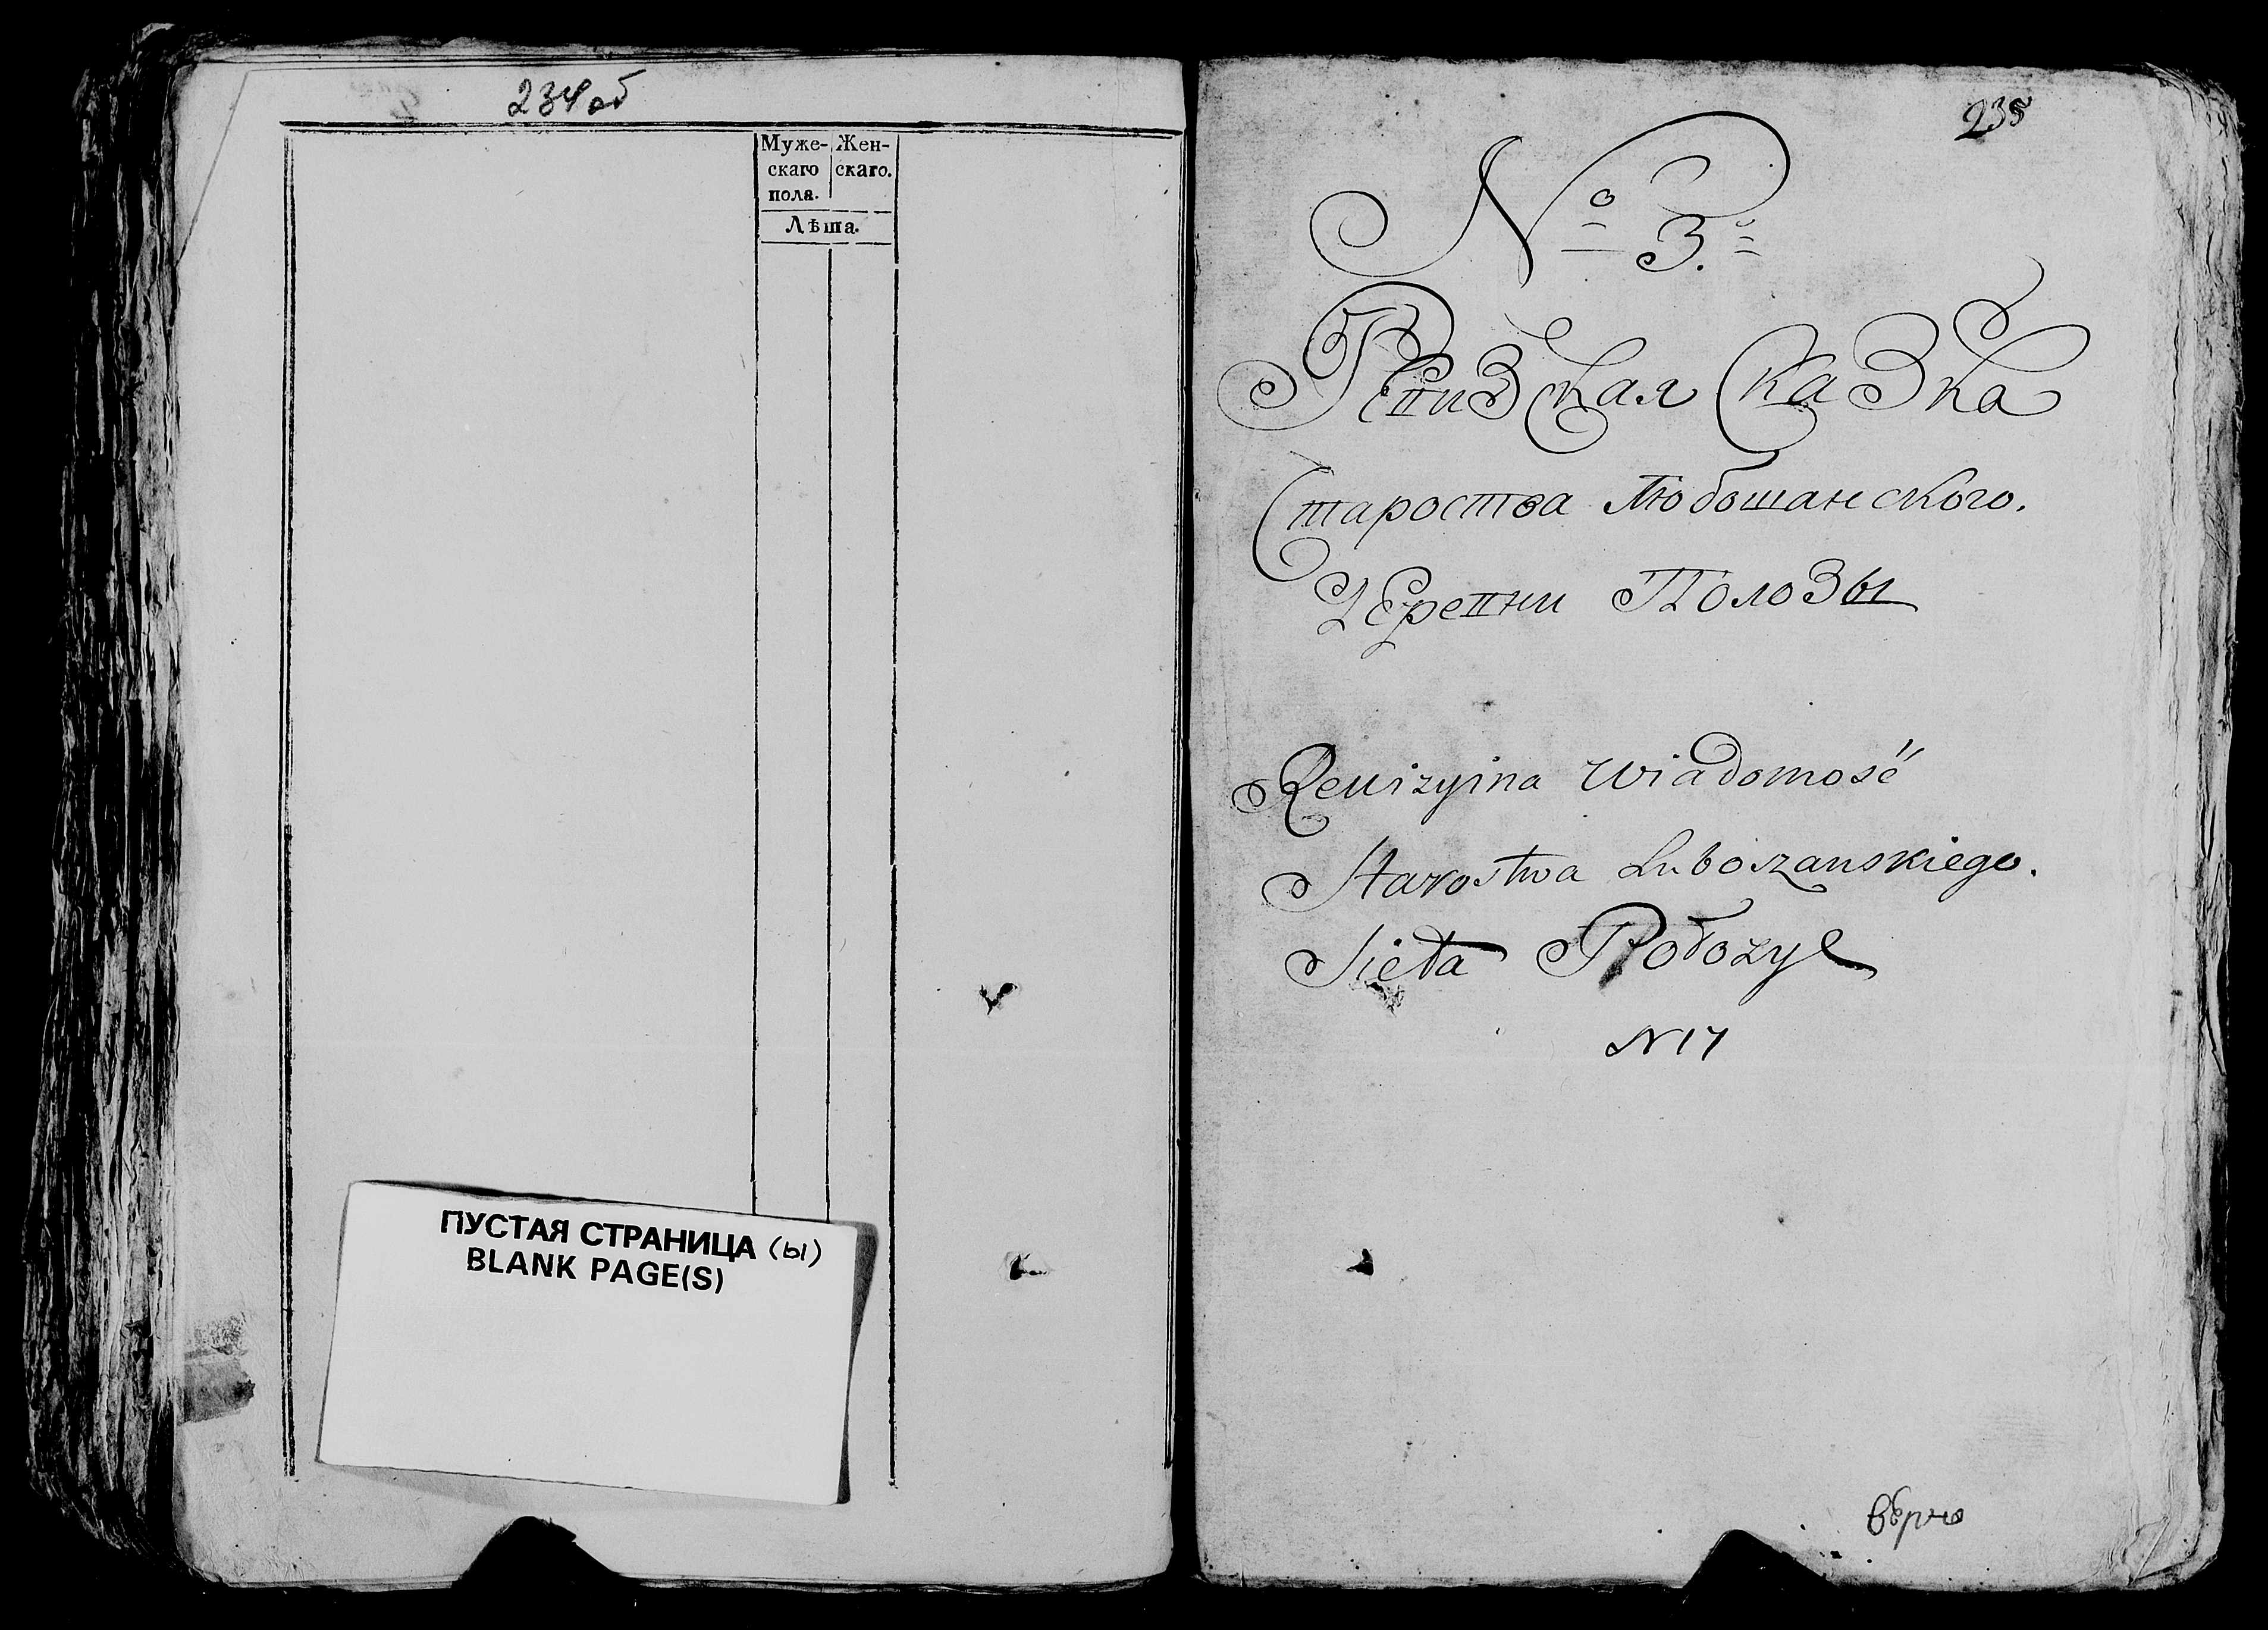 234 об
Муже- Жен-
скаго скаго.
пола.
Лѣта.
ПУСТАЯ СТРАНИЦА (ы)
BLANK PAGE(S)
235
№ 3.
Ревизская Сказка
Староства Любошанского.
Деревни Полозы
Rewizyina Wiadomość
Starostwa Luboszanskiego.
Sieła Połozy
N 17
верно